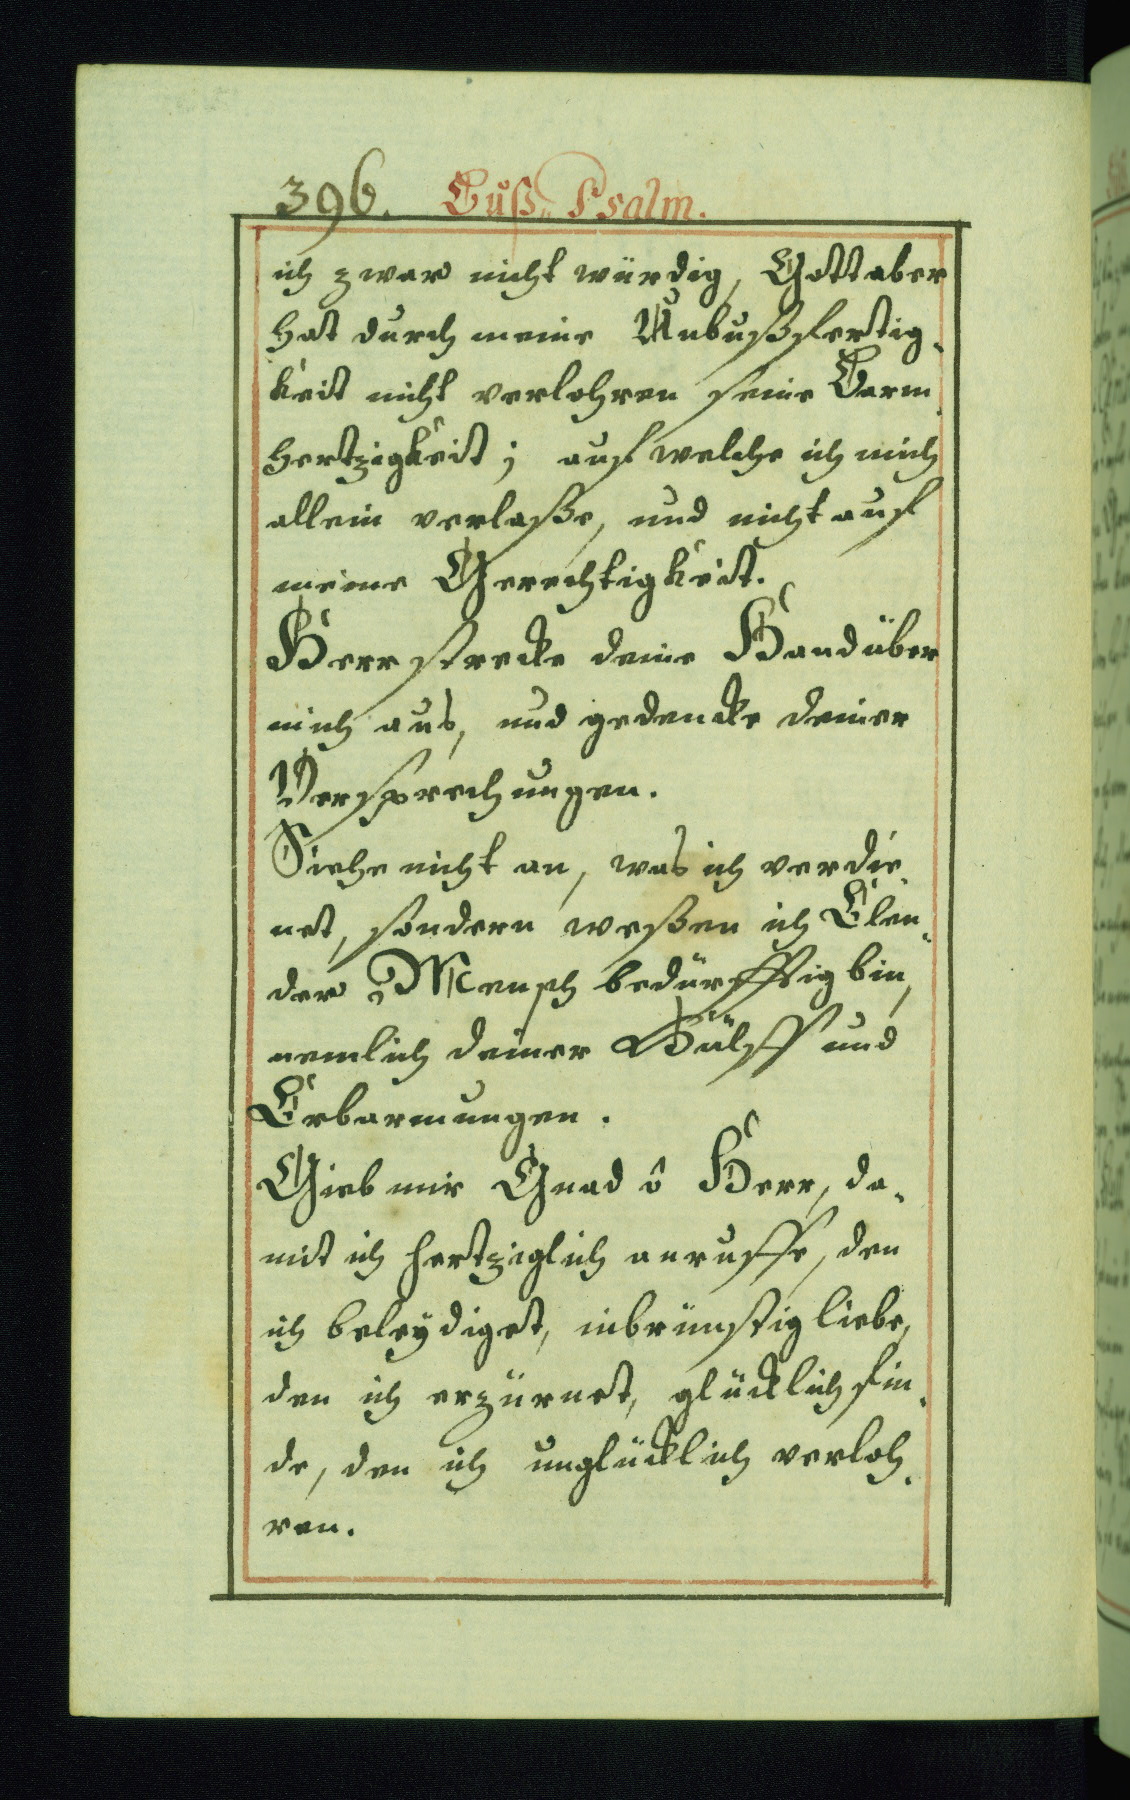 396. Buß„ Psalm.
ich zwar nicht würdig, Gott aber
hat durch meine Unbußfertig„
keit nicht verlohren seine Barm„
hertzigkeit; auf welche ich mich
allein verlaße, und nicht auf
meine Gerechtigkeit.
Herr strecke deine Hand über
mich aus, und gedencke deiner
Versprechungen.
Siehe nicht an, was ich verdie„
net, sondern weßen ich Elen„
der Mensch bedürfftig bin,
nemlich deiner Hülff und
Erbarmungen.
Gieb mir Gnad ô Herr, da„
mit ich hertziglich anruffe, den
ich beleÿdiget, inbrünstig liebe,
den ich erzürnet, glücklich fin„
de, den ich unglücklich verloh„
ren.